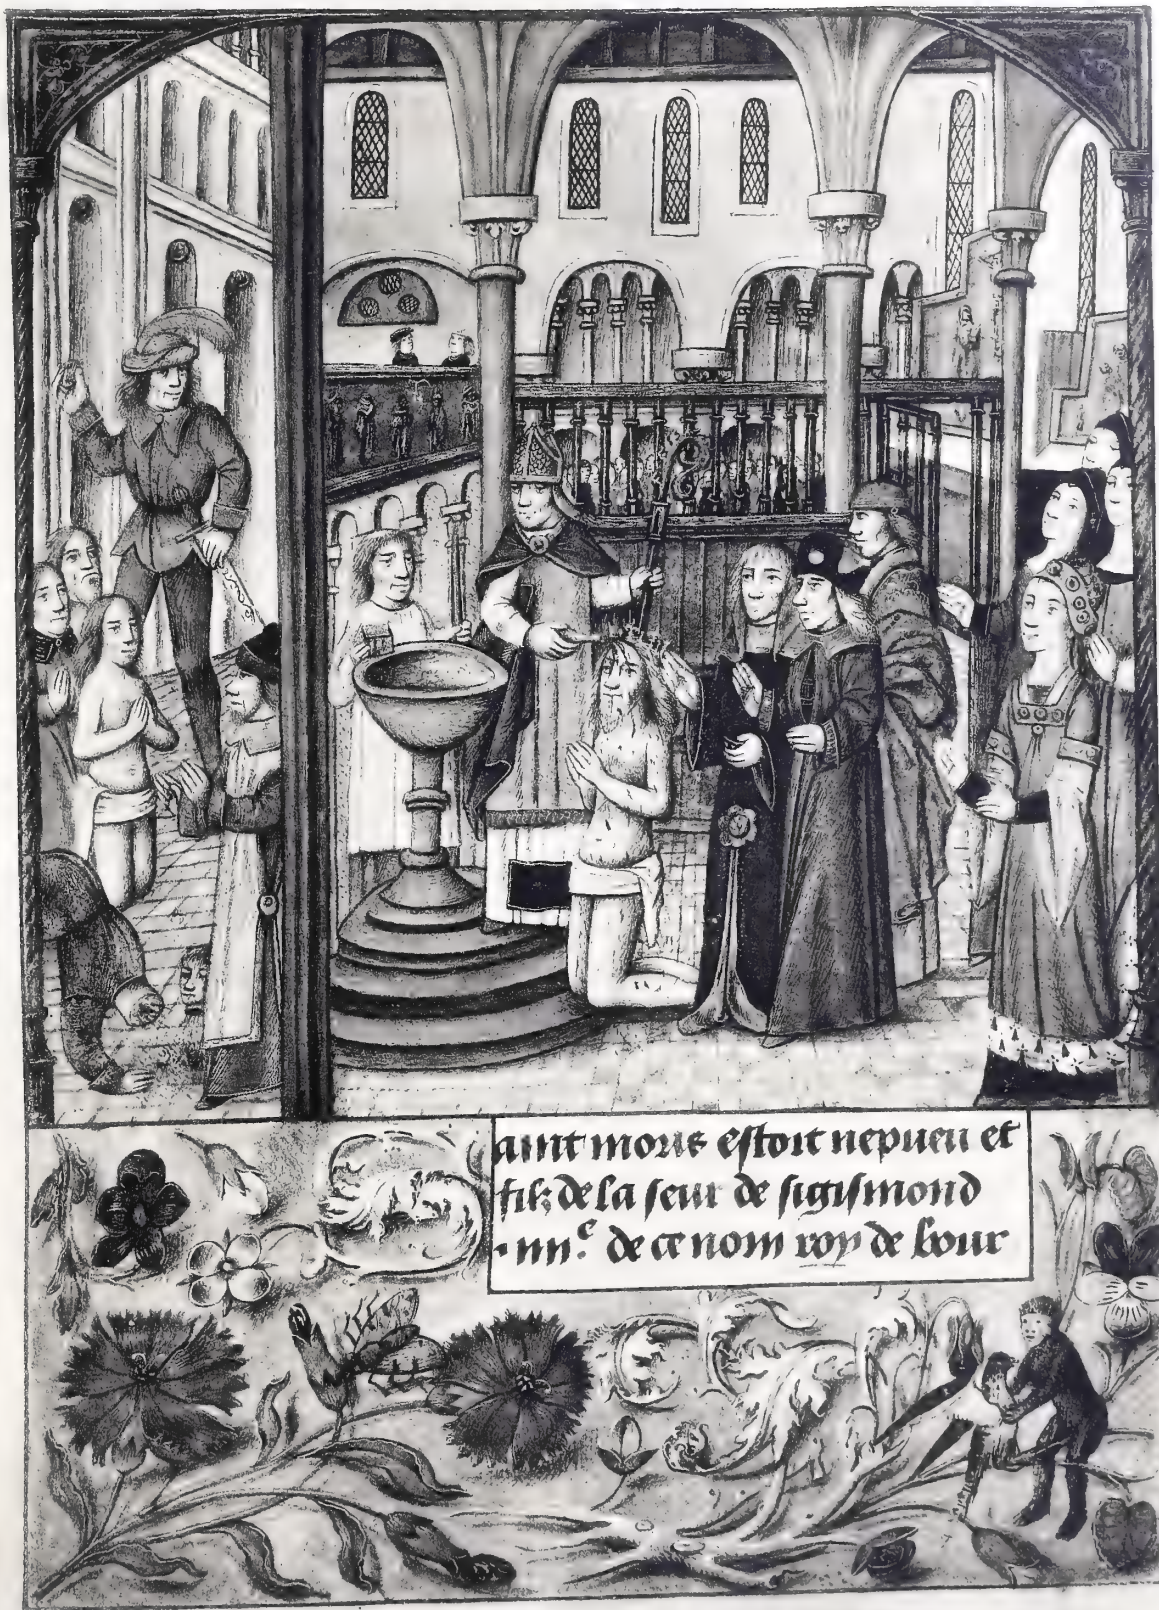 aint moris estoit nepueu et
filz de la seur de sigismond
.iiii.e de ce nom roy de bour